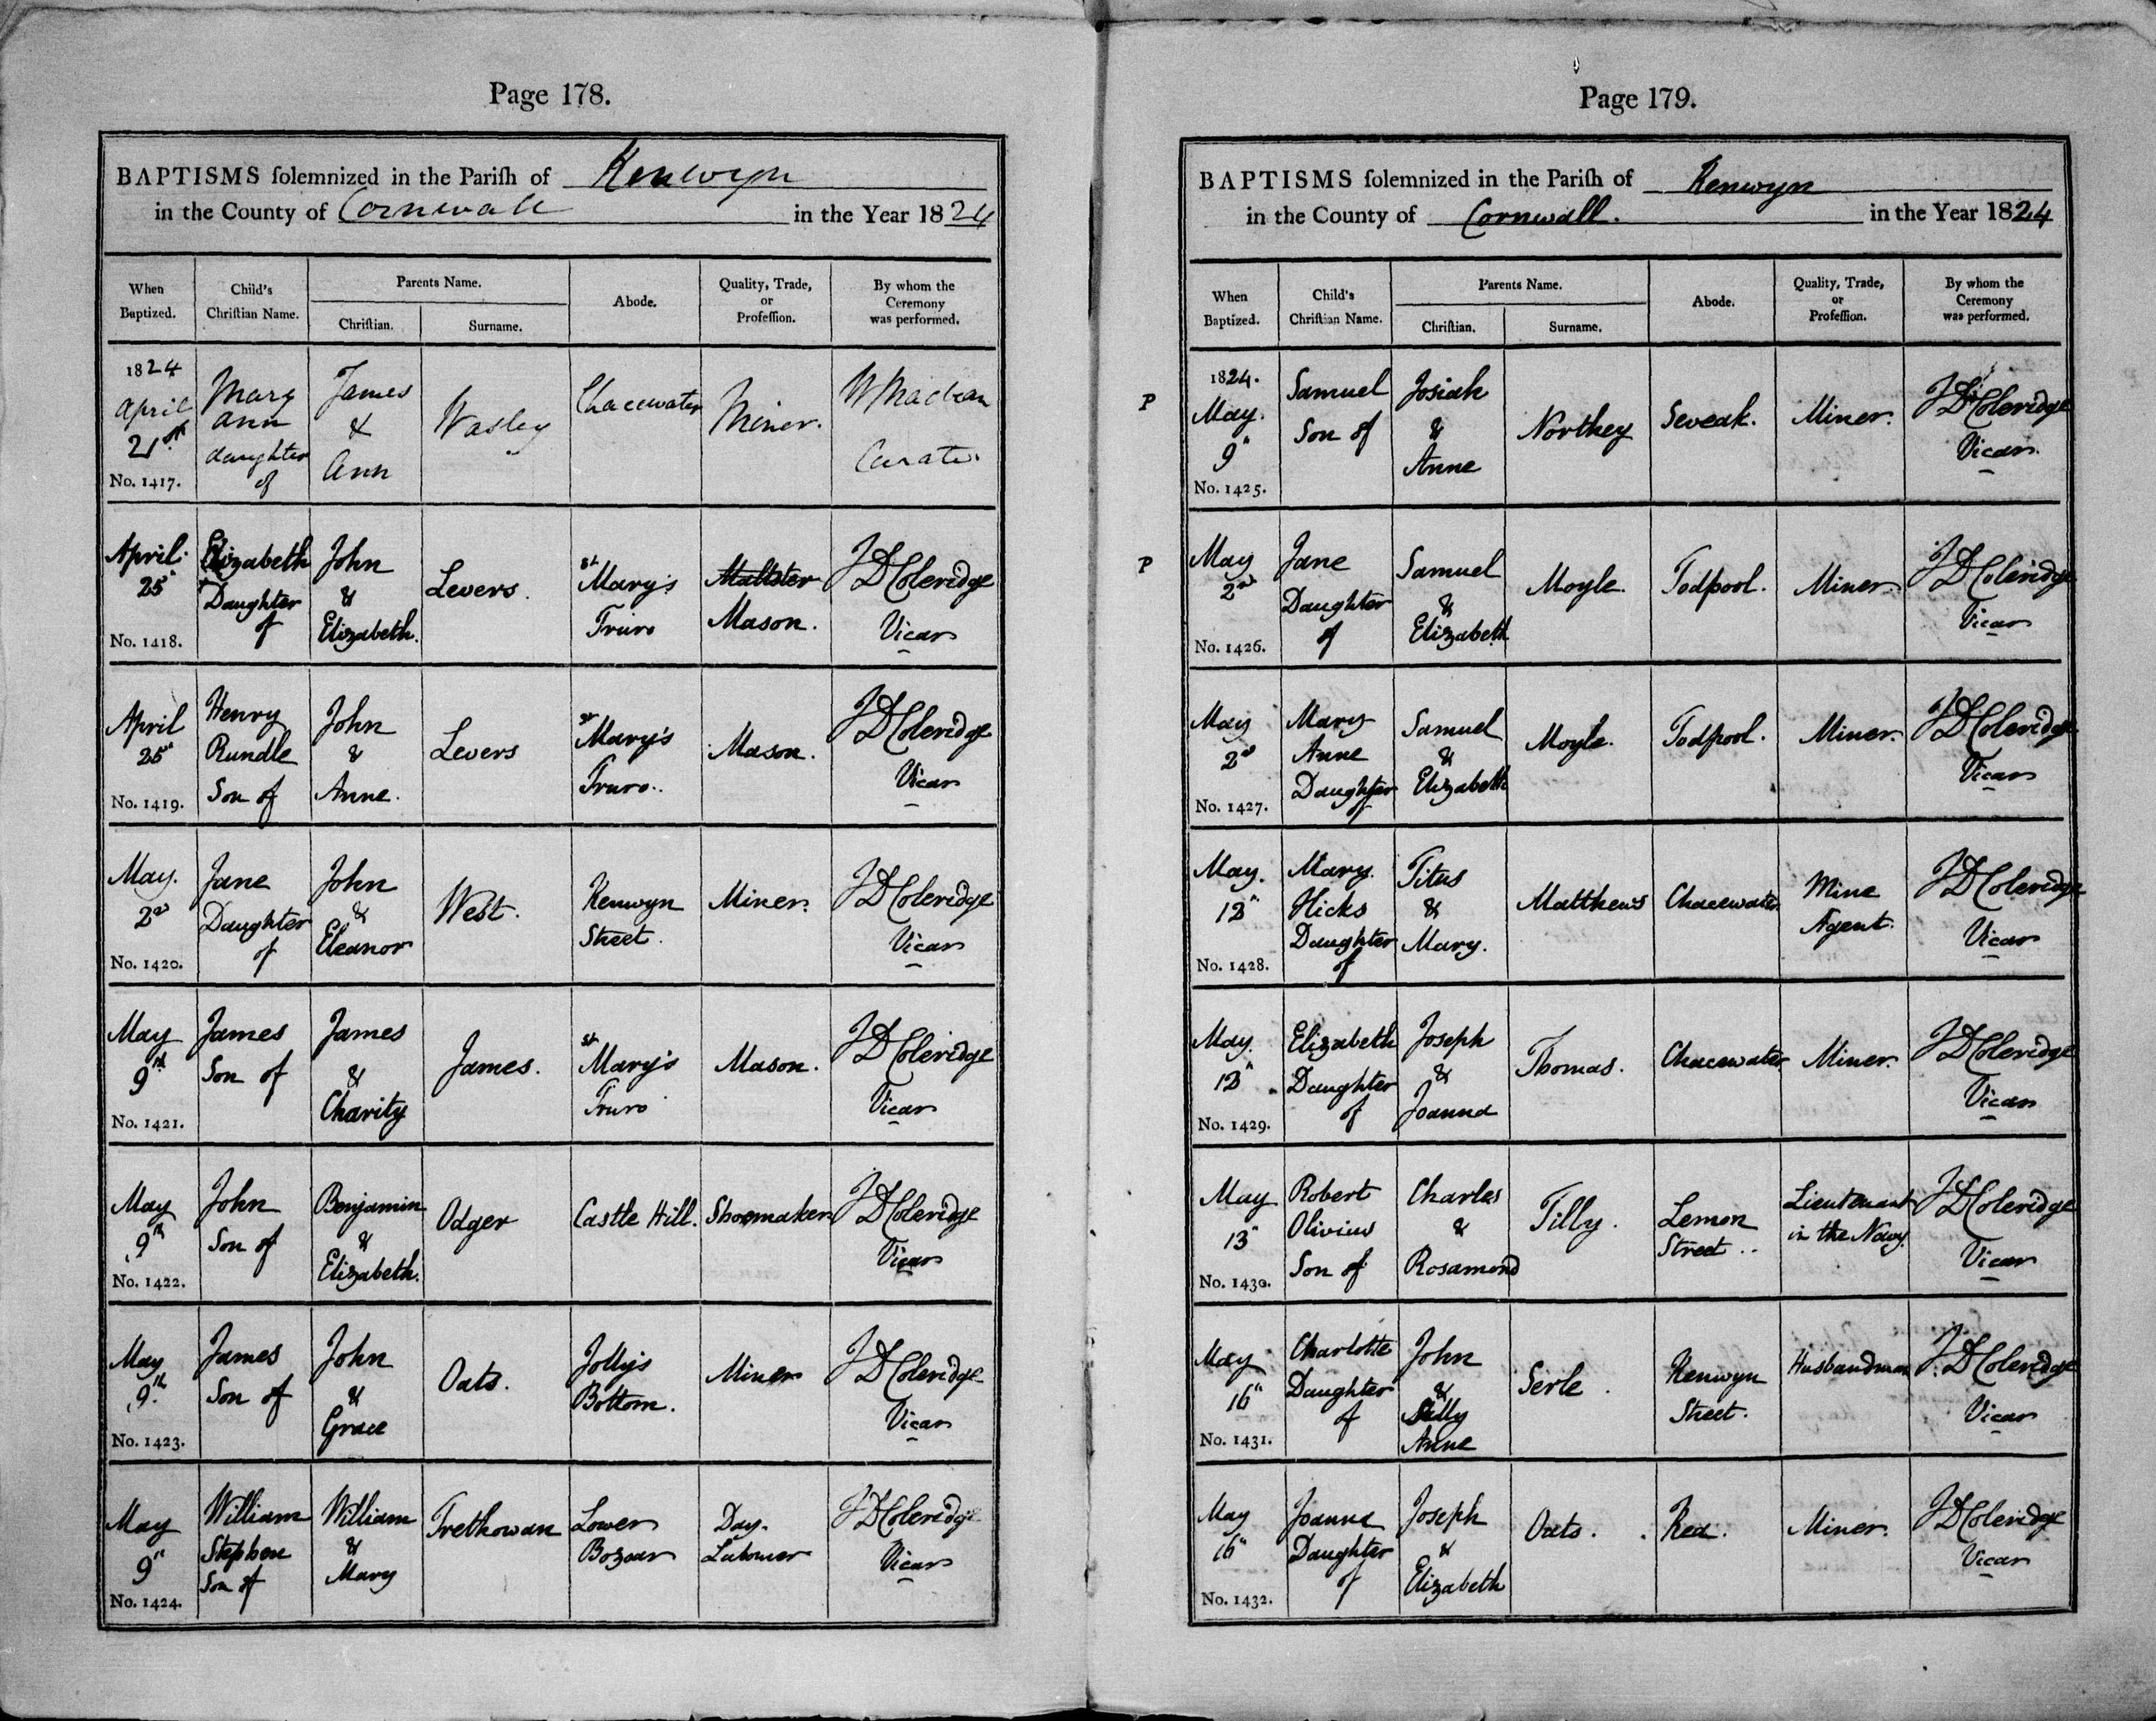 Page 178.
BAPTISMS solemnized in the Parish of Kenwyn
in the County of Cornwall in the Year 1824
When Baptized.
Child's Christian Name.
Parents Name.
Christian.
Surname.
Abode.
Quality, Trade, or Profession.
By whom the Ceremony was performed.
1824 April 21st No. 1417.
Mary Ann daughter of
James & Ann
Wasley
Chacewater
Miner.
Curate.
April 25" No. 1418.
Elizabeth Daughter of
John & Elizabeth.
Levers.
St Mary's Truro
Maltster Mason.
JD Coleridge Vicar
April 25" No. 1419.
Henry Rundle Son of
John & Anne.
Levers
St Mary's Truro..
Mason.
JD Coleridge Vicar
May. 2nd No. 1420.
Jane Daughter of
John & Eleanor
West.
Kenwyn Street.
Miner.
JD Coleridge Vicar
May 9th No. 1421.
James Son of
James & Charity
James.
St Mary's Truro
Mason.
JD Coleridge Vicar
May 9th No. 1422.
John Son of
Benjamin & Elizabeth.
Odger
Castle Hill.
Shoemaker
JD Coleridge Vicar
May 9th No. 1423.
James Son of
John & Grace
Oats.
Jolly's Bottom.
Miner
JD Coleridge Vicar
May 9" No. 1424.
William Stephen Son of
William & Mary
Trethowan
Lower Bozear
Day. Labourer
JD Coleridge Vicar
Page 179.
BAPTISMS solemnized in the Parish of Kenwyn
in the County of Cornwall. in the Year 1824
When Baptized.
Child's Christian Name.
Parents Name.
Christian.
Surname.
Abode.
Quality, Trade, or Profession.
By whom the Ceremony was performed.
P
1824. May. 9" No. 1425.
Samuel Son of
Josiah & Anne
Northey
Seveak.
Miner.
JD Coleridge Vicar.
P
May 2nd No. 1426.
Jane Daughter of
Samuel & Elizabeth
Moyle.
Todpool.
Miner.
JD Coleridge Vicar
May 2nd No. 1427.
Mary Anne Daughter of
Samuel & Elizabeth
Moyle.
Todpool.
Miner.
JD Coleridge Vicar
May. 13" No. 1428.
Mary Hicks Daughter of
Titus & Mary.
Matthews
Chacewater
Mine Agent.
JD Coleridge Vicar
May. 13" No. 1429.
Elizabeth Daughter of
Joseph & Joanna
Thomas.
Chacewater
Miner.
JD Coleridge Vicar
May 13" No. 1430.
Robert Olivius Son of
Charles & Rosamond
Tilly.
Lemon Street..
Lieutenant in the Navy.
JD Coleridge Vicar
May 16" No. 1431.
Charlotte Daughter of
John & Anne
Serle.
Kenwyn Street.
Husbandman
JD Coleridge Vicar
May 16" No. 1432.
Joanna Daughter of
Joseph & Elizabeth
Oats.
Rea.
Miner.
JD Coleridge Vicar